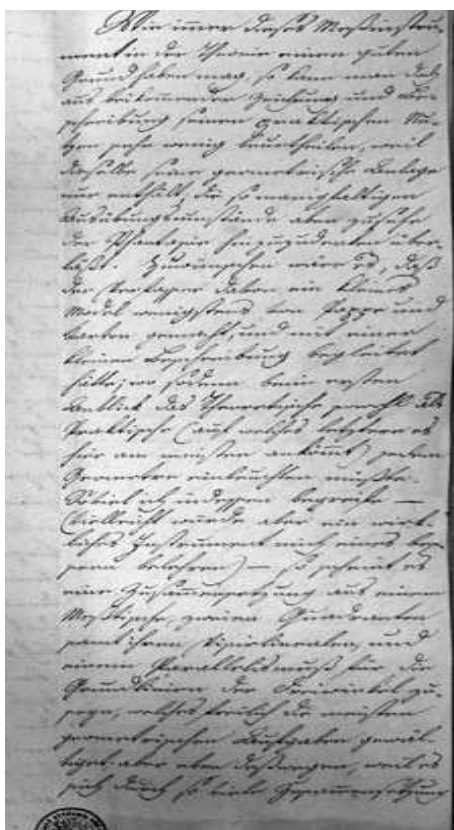 Wie immer dieses Meßinstru-
ment in der Theorie einen guten
Grund haben mag, so kann man doch
aus beikommender Zeichnung und Be-
schreibung seinen praktischen Nu-
tzen sehr wenig beurtheilen, weil
dieselbe seine geometrische Anlage
nur enthält, die so manighaltigen
Ausübungsumstände aber zu sehr
der Phantasie hinzuzudenken über-
läßt. Zu wünschen wäre es, daß
der Verfasser davon ein kleines
Model wenigstens von Pappe und
Karten gemacht, und mit einer
kleinen Beschreibung begleitet
hätte; wo sodann beim ersten
Anblick das Theoretische sowohl als
Praktische (auf welches letztere es
hier am meisten ankömt) jedem
Geometer einleuchten müßte.
Soviel ich indessen begreife —
(vielleicht würde aber ein wirk-
liches Instrument mich eines bes-
sern belehren) — so scheint es
eine Zusammensetzung aus einem
Meßtische, zweien Quadranten
samt ihren Visirlinealen, und
einem Parallelismus für die
Grundlinien der Dreiwinkel zu
seyn, welches freilich die meisten
geometrischen Aufgaben gewäl-
tiget, aber eben deßwegen, weil es
sich durch so viele Zusammensetzung